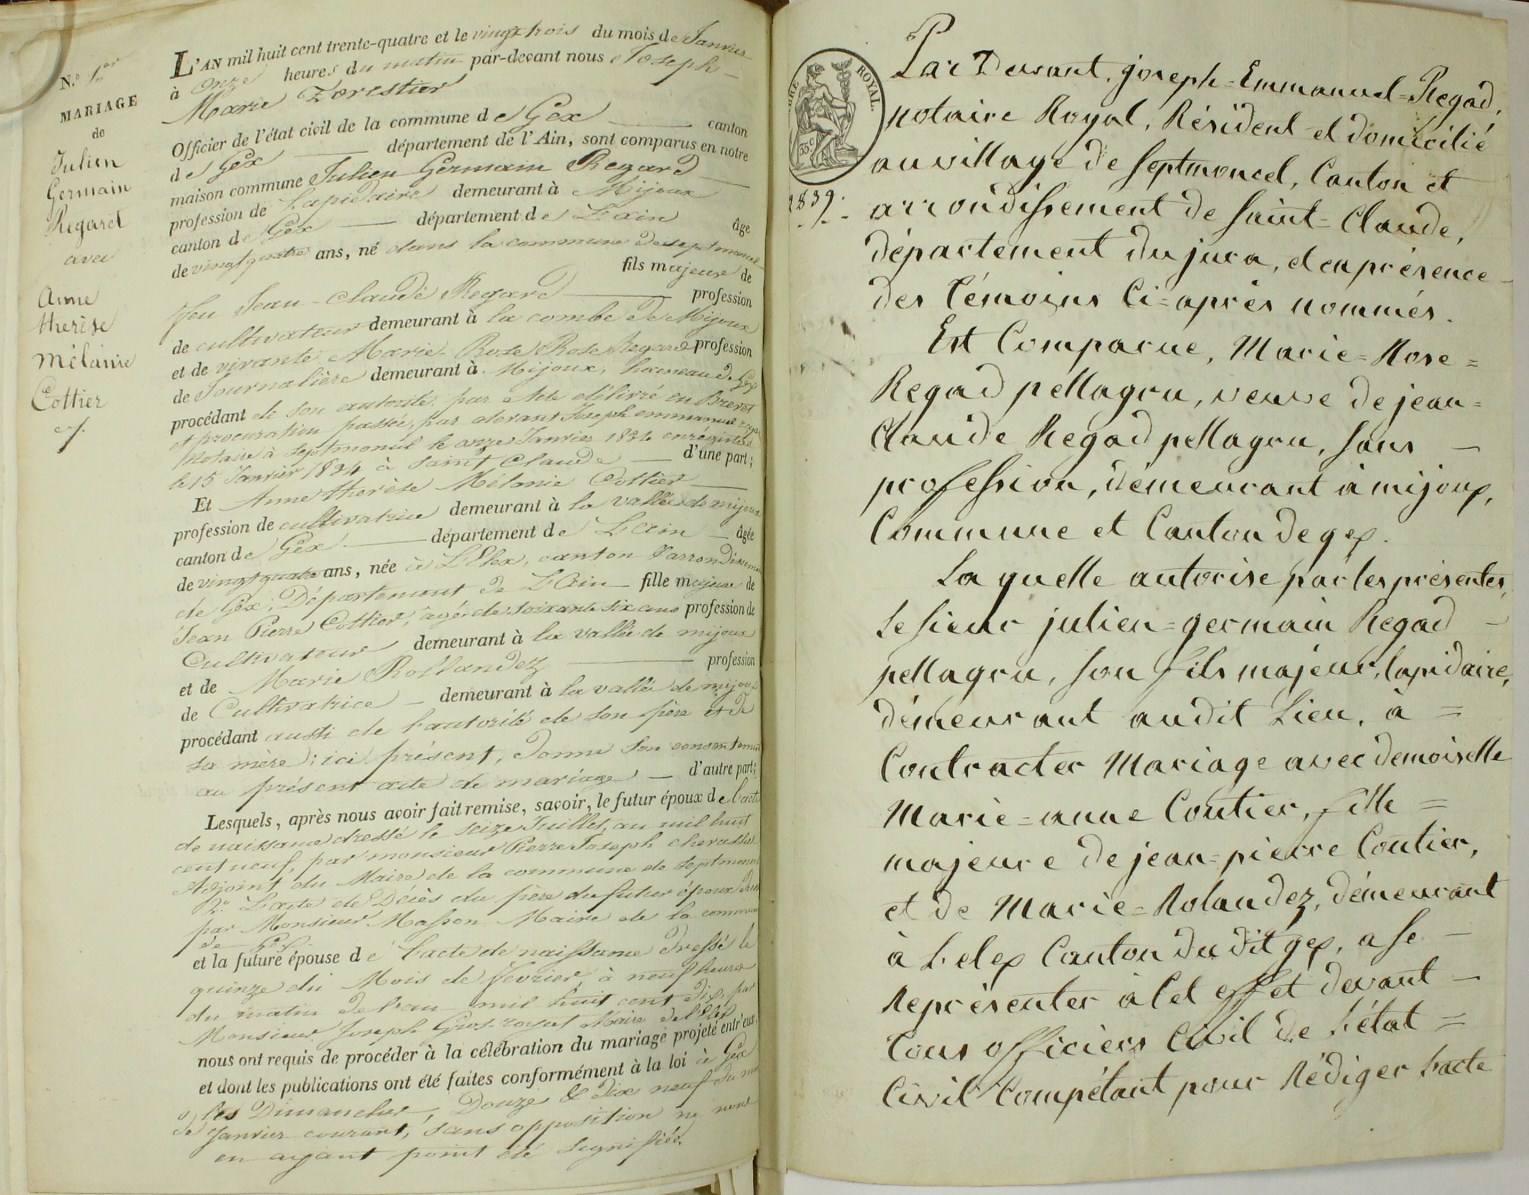 N.º 1.er
MARIAGE
de
Julien
Germain
Regard
avec
Anne
therèse
Mélanie
Cottier
L'AN mil huit cent trente-quatre et le vingt trois du mois de Janvier
à onze heures du matin par-devant nous Joseph
Marie Forestier
Officier de l'état civil de la commune de Gex canton
de Gex département de l'Ain, sont comparus en notre
maison commune Julien Germain Regard
profession de Lapidaire demeurant à Mijoux
canton de Gex département de L'ain âgé
de vingt quatre ans, né dans la commune de septmoncel
fils majeur de
feu Jean-claude Regard profession
de cultivateur demeurant à la combe de Mijoux
et de vivante Marie Rose Regard profession
de Journalière demeurant à Mijoux, hameau de Gex
procédant de son autorité, par acte délivré en Brevet
et procuration passée, par devant Joseph emmanuel
Notaire à septmoncel le onze Janvier 1834 enregistré
le 15 Janvier 1834 à Saint Claude d'une part;
Et Anne therèse Mélanie Cottier
profession de cultivatrice demeurant à la vallée de mijoux
canton de Gex département de L'ain âgée
de vingt quatre ans, née à L'Elex, canton & arrondissement
de Gex, Département de L'Ain fille majeure de
Jean Pierre Cottier, agé de soixante six ans profession de
Cultivateur demeurant à la vallée de mijoux
et de Marie Rollandez profession
de Cultivatrice demeurant à la vallée de mijoux
procédant aussi de l'autorité de son père et de
sa mère; ici présent, donne son consentement
au présent acte de mariage d'autre part;
Lesquels, après nous avoir fait remise, savoir, le futur époux de l'acte
de naissance dressé le seize Juillet, an mil huit
cent neuf, par monsieur Pierre Joseph
Adjoint du Maire de la commune de septmoncel
2º L'acte de Décès du père du futur époux
par Monsieur Masson Maire de la commune
de Gex
et la future épouse de l'acte de naissance dressé le
quinze du Mois de février à neuf heures
du matin de l'an mil huit cent dix, par
Monsieur Joseph Grosrayut Maire de l'Elex
nous ont requis de procéder à la célébration du mariage projeté entr'eux
et dont les publications ont été faites conformément à la loi à Gex
les Dimanches, Douze & Dix neuf du mois
de Janvier courant, sans opposition ne nous
en ayant point été signifiée
ROYAL.
Par Devant, joseph=Emmanuel=Regad,
notaire Royal, Résident et domicilié
au village de septmoncel, Canton et
arrondissement de saint=Claude,
département du jura, et en présence
des témoins Ci=après nommés.
Est Comparue, Marie=Rose=
Regad pellagru, veuve de jean=
Claude Regad pellagru, sans
profession, démeurant à mijoux,
Commune et Canton de gex.
La quelle autorise par les présentes,
le sieur julien=germain Regad
pellagru, son fils majeur, lapidaire,
démeurant audit Lieu, à =
Contracter Mariage avec demoiselle
Marie=anne Coutier, fille =
majeure de jean=pierre Coutier,
et de Marie=Rolandez, démeurant
à Lelex Canton dudit gex, a se
Représenter à Cet effet devant
tous officiers Civil de L'état =
Civil Compétant pour Rédiger L'acte